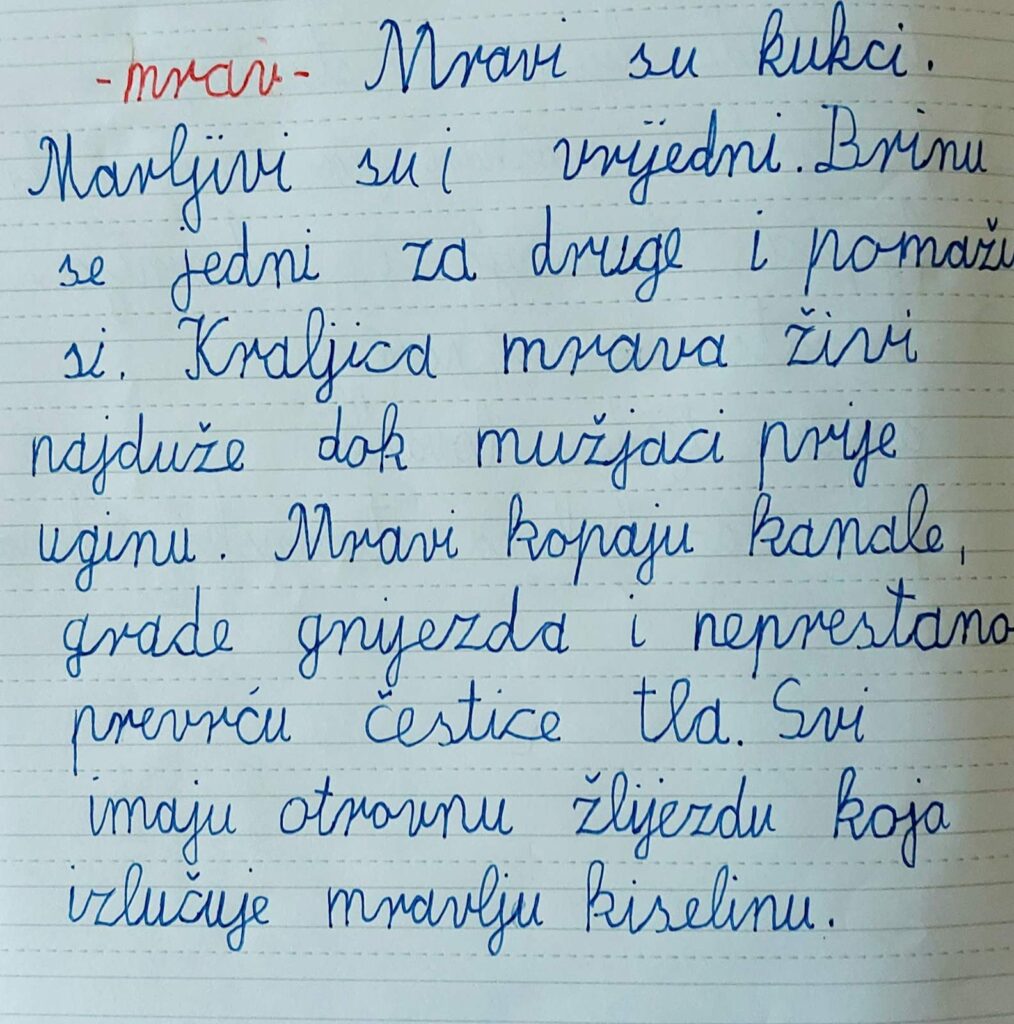 -mrav- Mravi su kukci.
Marljivi su i vrijedni. Brinu
se jedni za druge i pomažu
si. Kraljica mrava živi
najduže dok mužjaci prije
uginu. Mravi kopaju kanale,
grade gnijezda i neprestano
prevrću čestice tla. Svi
imaju otrovnu žlijezdu koja
izlučuje mravlju kiselinu.